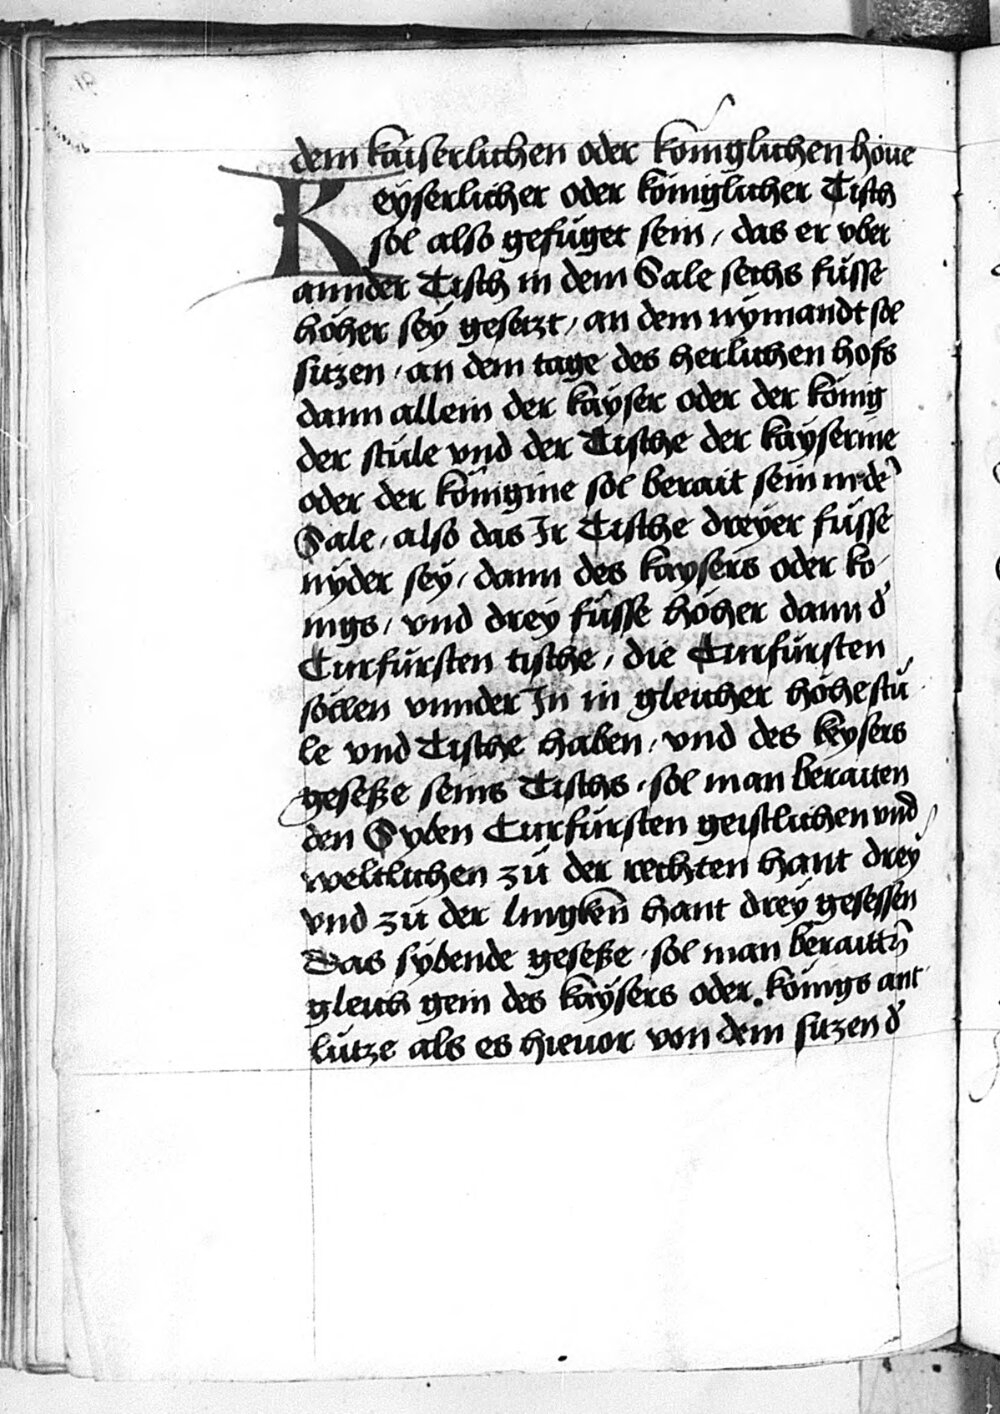 dem kaiserlichen oder königlichen höue
Keyserlicher oder königlicher Tisch
sol also gefüget sein / das er vber
annder Tisch in dem Sale sechs füsse
höher sey gesetzt / an dem nymandt sol
sitzen / an dem tage des herlichen hofs
dann allein der kayser oder der könig
der stule vnd der Tische der kayserine
oder der königine sol berait sein in de͂
Sale / also das Ir Tische dreyer füsse
nyder sey / dann des kaysers oder kö-
nigs / vnd drey füsse höher dann d'
Curfürsten tische / die Curfürsten
söllen vnnder In in gleicher höhe stü
le vnd Tische haben / vnd des keysers
geseße seins Tischs / sol man beraiten
den Syben Curfürsten geistlichen vnd
weltlichen zü der rechten hant drey
vnd zü der lingken̄ hant drey gesessen
Das sybende geseße / sol man beraittn̄
gleich gein des kaysers oder königs ant
lütze als es hieuor von dem sitzen d'